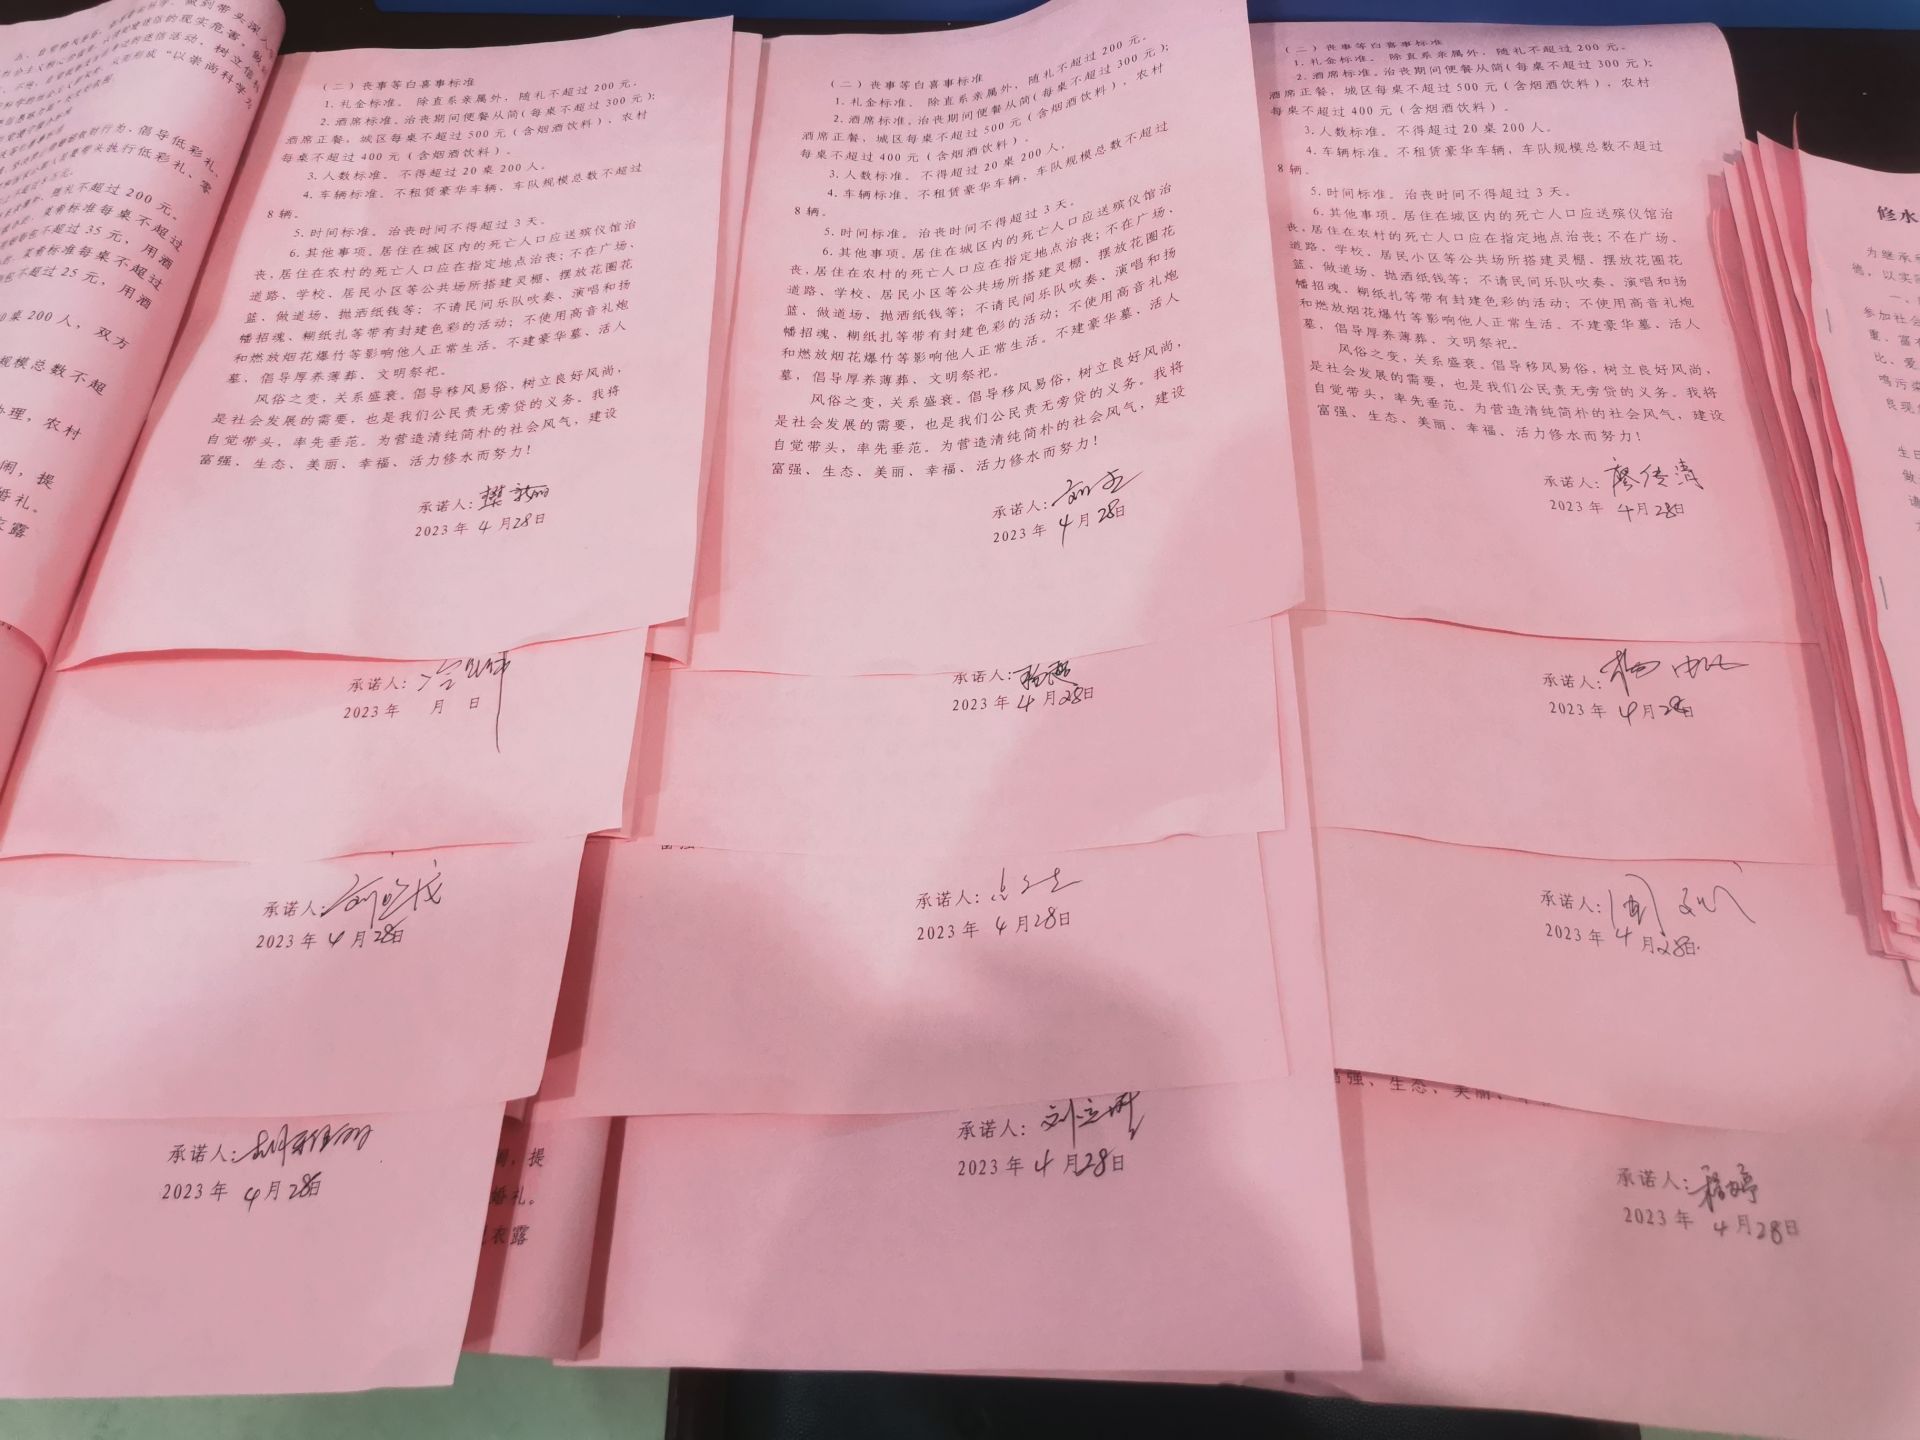 做到带头深
的现实危害，做
的迷信活动，树立信
形成“以崇尚科学为
财行为，倡导低彩礼、
带头执行低彩礼、零
随礼不超过 200 元。
菜肴标准每桌不超过
包不超过 35 元，用酒
菜肴标准每桌不超过
包不超过 25 元，用酒
桌 200 人，双方
规模总数不超
办理，农村
闹，提
婚礼。
衣露
（二）丧事等白喜事标准
1. 礼金标准。 除直系亲属外，随礼不超过 200 元。
2. 酒席标准。治丧期间便餐从简（每桌不超过 300 元）；
酒席正餐，城区每桌不超过 500 元（含烟酒饮料）、农村
每桌不超过 400 元（含烟酒饮料）。
3. 人数标准。不得超过 20 桌 200 人。
4. 车辆标准。不租赁豪华车辆，车队规模总数不超过
8 辆。
5. 时间标准。治丧时间不得超过 3 天。
6. 其他事项。居住在城区内的死亡人口应送殡仪馆治
丧，居住在农村的死亡人口应在指定地点治丧；不在广场、
道路、学校、居民小区等公共场所搭建灵棚、摆放花圈花
篮、做道场、抛洒纸钱等；不请民间乐队吹奏、演唱和扬
幡招魂、糊纸扎等带有封建色彩的活动；不使用高音礼炮
和燃放烟花爆竹等影响他人正常生活。不建豪华墓、活人
墓，倡导厚养薄葬、文明祭祀。
风俗之变，关系盛衰。倡导移风易俗，树立良好风尚，
是社会发展的需要，也是我们公民责无旁贷的义务。我将
自觉带头，率先垂范。为营造清纯简朴的社会风气，建设
富强、生态、美丽、幸福、活力修水而努力！
承诺人：
2023 年 4 月 28 日
（二）丧事等白喜事标准
1. 礼金标准。 除直系亲属外，随礼不超过 200 元。
2. 酒席标准。治丧期间便餐从简（每桌不超过 300 元）；
酒席正餐，城区每桌不超过 500 元（含烟酒饮料）、农村
每桌不超过 400 元（含烟酒饮料）。
3. 人数标准。不得超过 20 桌 200 人。
4. 车辆标准。不租赁豪华车辆，车队规模总数不超过
8 辆。
5. 时间标准。治丧时间不得超过 3 天。
6. 其他事项。居住在城区内的死亡人口应送殡仪馆治
丧，居住在农村的死亡人口应在指定地点治丧；不在广场、
道路、学校、居民小区等公共场所搭建灵棚、摆放花圈花
篮、做道场、抛洒纸钱等；不请民间乐队吹奏、演唱和扬
幡招魂、糊纸扎等带有封建色彩的活动；不使用高音礼炮
和燃放烟花爆竹等影响他人正常生活。不建豪华墓、活人
墓，倡导厚养薄葬、文明祭祀。
风俗之变，关系盛衰。倡导移风易俗，树立良好风尚，
是社会发展的需要，也是我们公民责无旁贷的义务。我将
自觉带头，率先垂范。为营造清纯简朴的社会风气，建设
富强、生态、美丽、幸福、活力修水而努力！
承诺人：
2023 年 4 月 28 日
（二）丧事等白喜事标准
1. 礼金标准。 除直系亲属外，随礼不超过 200 元。
2. 酒席标准。治丧期间便餐从简（每桌不超过 300 元）；
酒席正餐，城区每桌不超过 500 元（含烟酒饮料）、农村
每桌不超过 400 元（含烟酒饮料）。
3. 人数标准。不得超过 20 桌 200 人。
4. 车辆标准。不租赁豪华车辆，车队规模总数不超过
8 辆。
5. 时间标准。治丧时间不得超过 3 天。
6. 其他事项。居住在城区内的死亡人口应送殡仪馆治
丧，居住在农村的死亡人口应在指定地点治丧；不在广场、
道路、学校、居民小区等公共场所搭建灵棚、摆放花圈花
篮、做道场、抛洒纸钱等；不请民间乐队吹奏、演唱和扬
幡招魂、糊纸扎等带有封建色彩的活动；不使用高音礼炮
和燃放烟花爆竹等影响他人正常生活。不建豪华墓、活人
墓，倡导厚养薄葬、文明祭祀。
风俗之变，关系盛衰。倡导移风易俗，树立良好风尚，
是社会发展的需要，也是我们公民责无旁贷的义务。我将
自觉带头，率先垂范。为营造清纯简朴的社会风气，建设
富强、生态、美丽、幸福、活力修水而努力！
承诺人：廖传清
2023 年 4 月 28 日
修水
为继承
德，以实
一、
参加社会
重、富
比、爱
鸣污染
良现象
生日
做
承诺人：
2023 年 月 日
承诺人：
2023 年 4 月 28 日
承诺人：杨帆
2023 年 4 月 28 日
承诺人：
2023 年 4 月 28 日
承诺人：
2023 年 4 月 28 日
承诺人：
2023 年 4 月 28 日
强、生态、美丽、
承诺人：
2023 年 4 月 28 日
，提
婚礼。
衣露
承诺人：刘立
2023 年 4 月 28 日
承诺人：程婷
2023 年 4 月 28 日